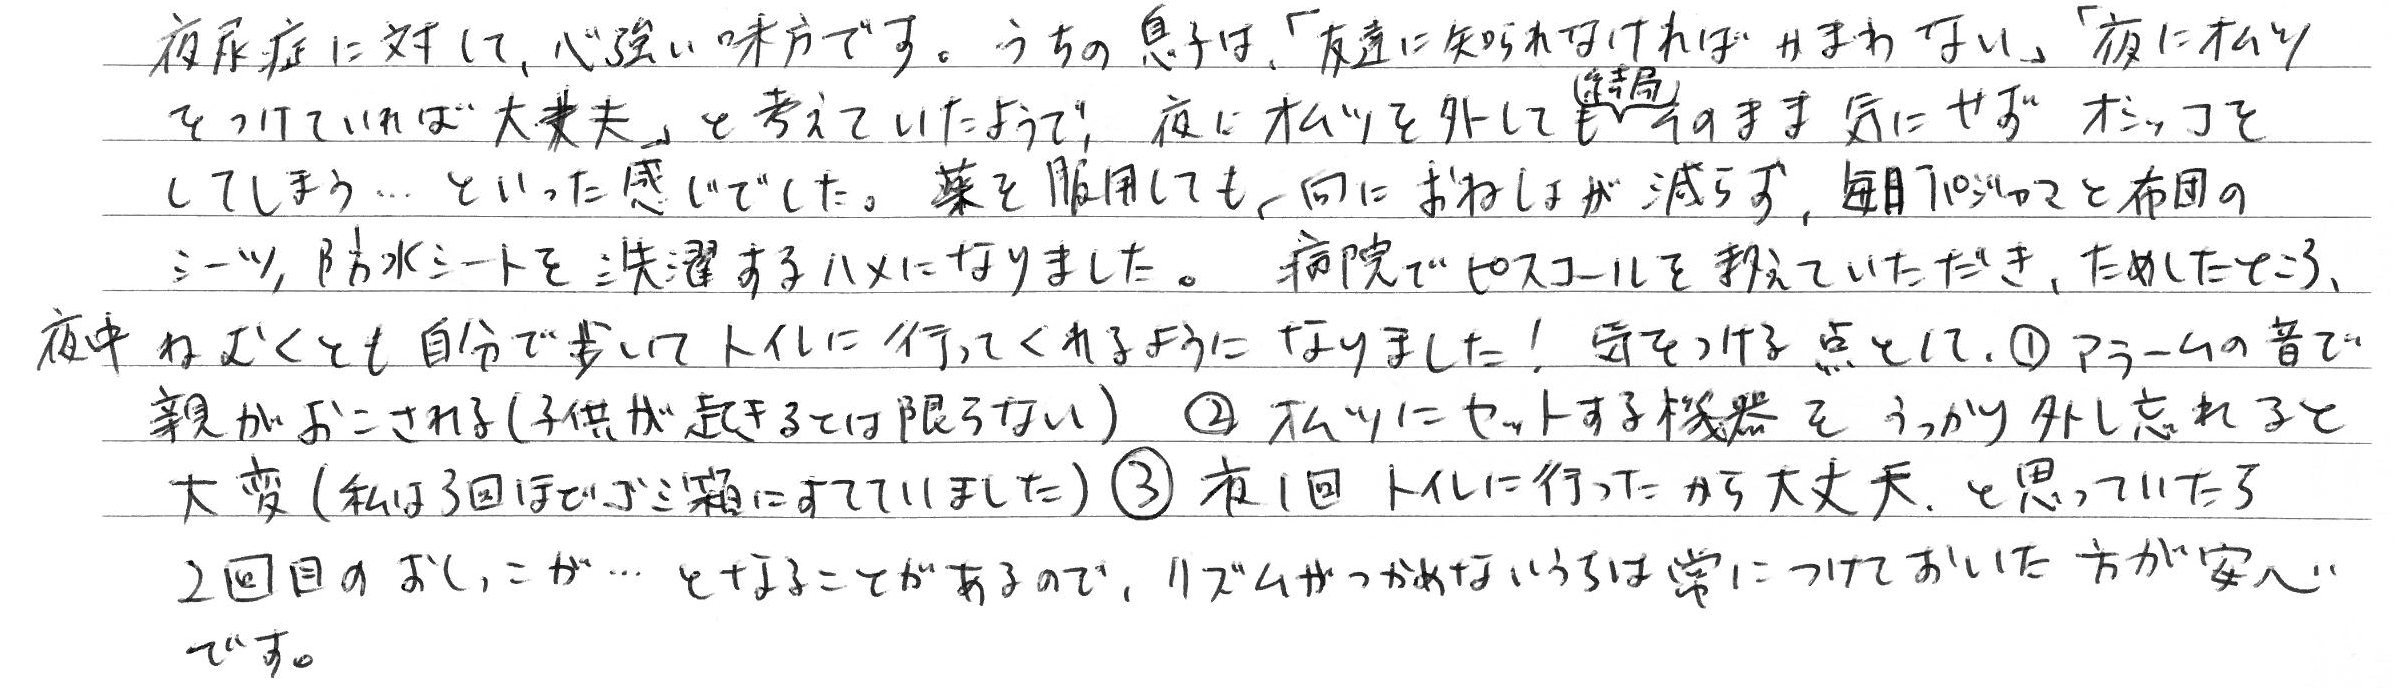 夜尿症に対して、心強い味方です。うちの息子は、「友達に知られなければかまわない」「夜にオムツ
をつけていれば大丈夫」と考えていたようで、夜にオムツを外しても結局そのまま気にせずオシッコを
してしまう…といった感じでした。薬を服用しても、一向におねしょが減らず、毎日パジャマと布団の
シーツ、防水シートを洗濯するハメになりました。病院でピスコールを教えていただき、ためしたところ、
夜中ねむくとも自分で歩いてトイレに行ってくれるようになりました！気をつける点として、①アラームの音で
親がおこされる(子供が起きるとは限らない) ②オムツにセットする機器をうっかり外し忘れると
大変(私は3回ほどゴミ箱にすてていました) ③夜1回トイレに行ったから大丈夫、と思っていたら
2回目のおしっこが…となることがあるので、リズムがつかめないうちは常につけておいた方が安心
です。